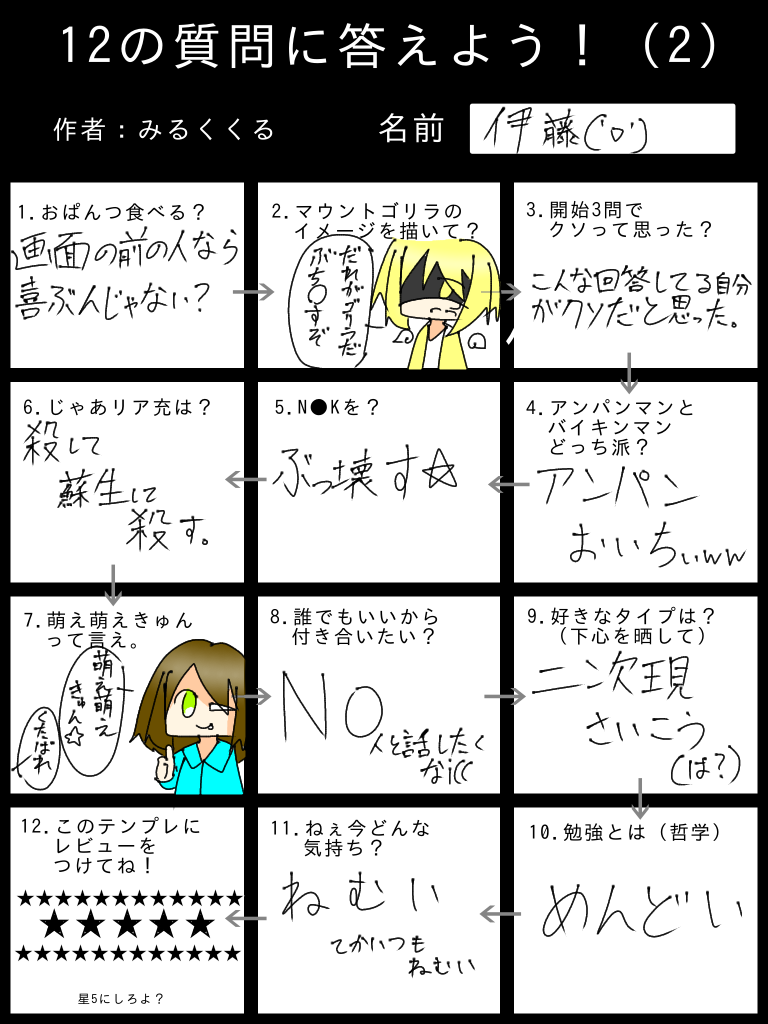 12の質問に答えよう！（2）
作者：みるくくる
名前
伊藤('ㅁ')
1.おぱんつ食べる？
画面の前の人なら
喜ぶんじゃない？
2.マウントゴリラの
イメージを描いて？
だれがゴリラだ
ぶち〇すぞ
3.開始3問で
クソって思った？
こんな回答してる自分
がクソだと思った。
4.アンパンマンと
バイキンマン
どっち派？
アンパン
おいちぃww
5.N●Kを？
ぶっ壊す☆
6.じゃあリア充は？
殺して
蘇生して
殺す。
7.萌え萌えきゅん
って言え。
萌え萌え
きゅん☆
くたばれ
8.誰でもいいから
付き合いたい？
NO
人と話したく
ない((
9.好きなタイプは？
（下心を晒して）
二次元
さいこう
(は？)
10.勉強とは（哲学）
めんどい
11.ねぇ今どんな
気持ち？
ねむい
てかいつも
ねむい
12.このテンプレに
レビューを
つけてね！
★★★★★★★★★★★★
★★★★★
★★★★★★★★★★★★
星5にしろよ？